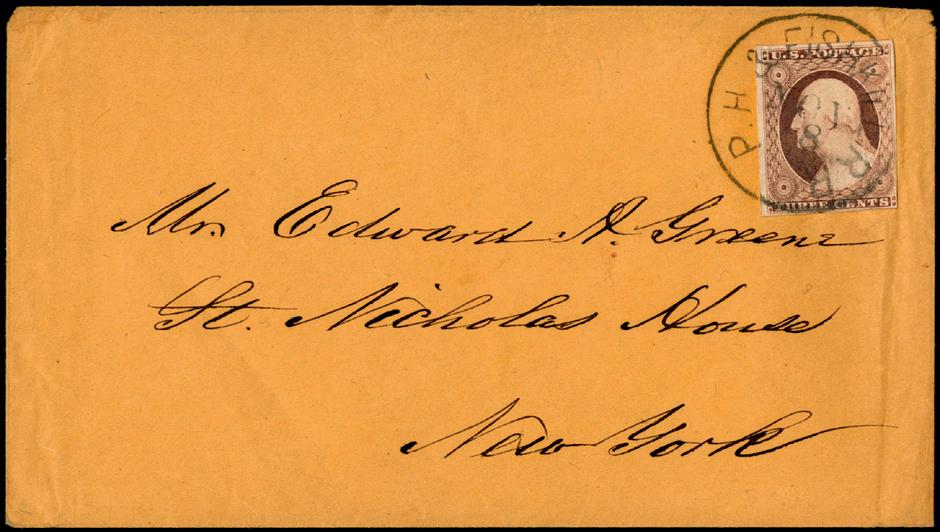 P.H. & FISHKILL R.R.
NOV
8
U.S. POSTAGE
THREE CENTS
Mr. Edward A. Greene
St. Nicholas House
New York